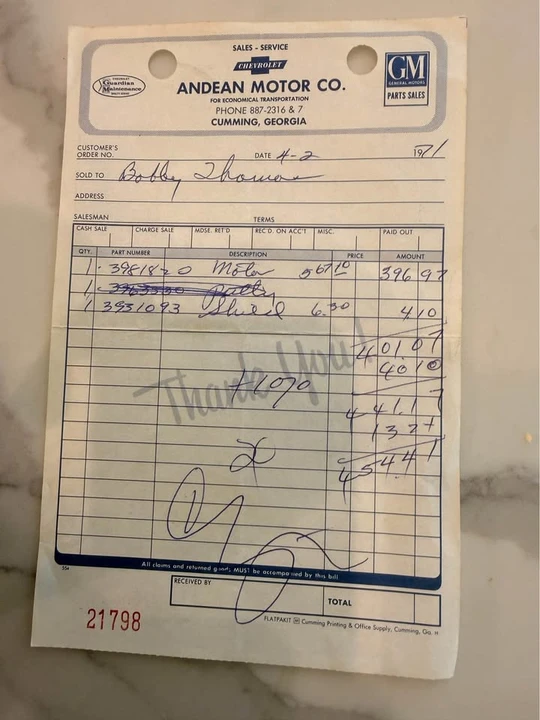 SALES - SERVICE
CHEVROLET
CHEVROLET Guardian Maintenance
ANDEAN MOTOR CO.
FOR ECONOMICAL TRANSPORTATION
PHONE 887-2316 & 7
CUMMING, GEORGIA
GM
GENERAL MOTORS
PARTS SALES
CUSTOMER'S ORDER NO. DATE 4-2 1971
SOLD TO Bobby Thomas
ADDRESS
SALESMAN TERMS
CASH SALE CHARGE SALE MDSE. RET'D REC'D. ON ACC'T MISC. PAID OUT
QTY. PART NUMBER DESCRIPTION PRICE AMOUNT
1 3981820 Motor 567.10 396 97
1
1 3931093 Shield 6.30 4 10
401.07
40 10
+10%
441.17
13 24
454 41
Thank You!
All claims and returned goods MUST be accompanied by this bill
554
RECEIVED BY TOTAL
21798
FLATPAKIT Cumming Printing & Office Supply, Cumming, Ga.